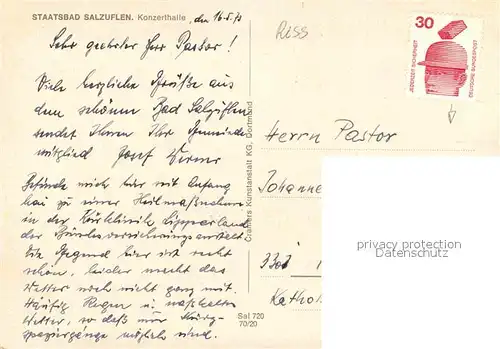 STAATSBAD SALZUFLEN. Konzerthalle, den 16.5.73
Sehr geehrter Herr Pastor!
Viele herzliche Grüße aus
dem schönen Bad Salzuflen
sendet Ihnen Ihr Gemeinde
mitglied Josef Werner
Befinde mich hier seit Anfang
Mai zu einer Heilmaßnahme
in der Kurklinik Lipperland
der Bundesversicherungsanstalt.
Die Gegend hier ist recht
schön, leider macht das
Wetter noch nicht ganz mit.
Häufig Regen u. naßkaltes
Wetter, so daß nur Kurz-
spaziergänge möglich sind.
Cramers Kunstanstalt KG, Dortmund
Sal 720
70/20
Riss
30
JEDERZEIT SICHERHEIT
DEUTSCHE BUNDESPOST
Herrn Pastor
Johanne
Kathol
privacy protection
Datenschutz